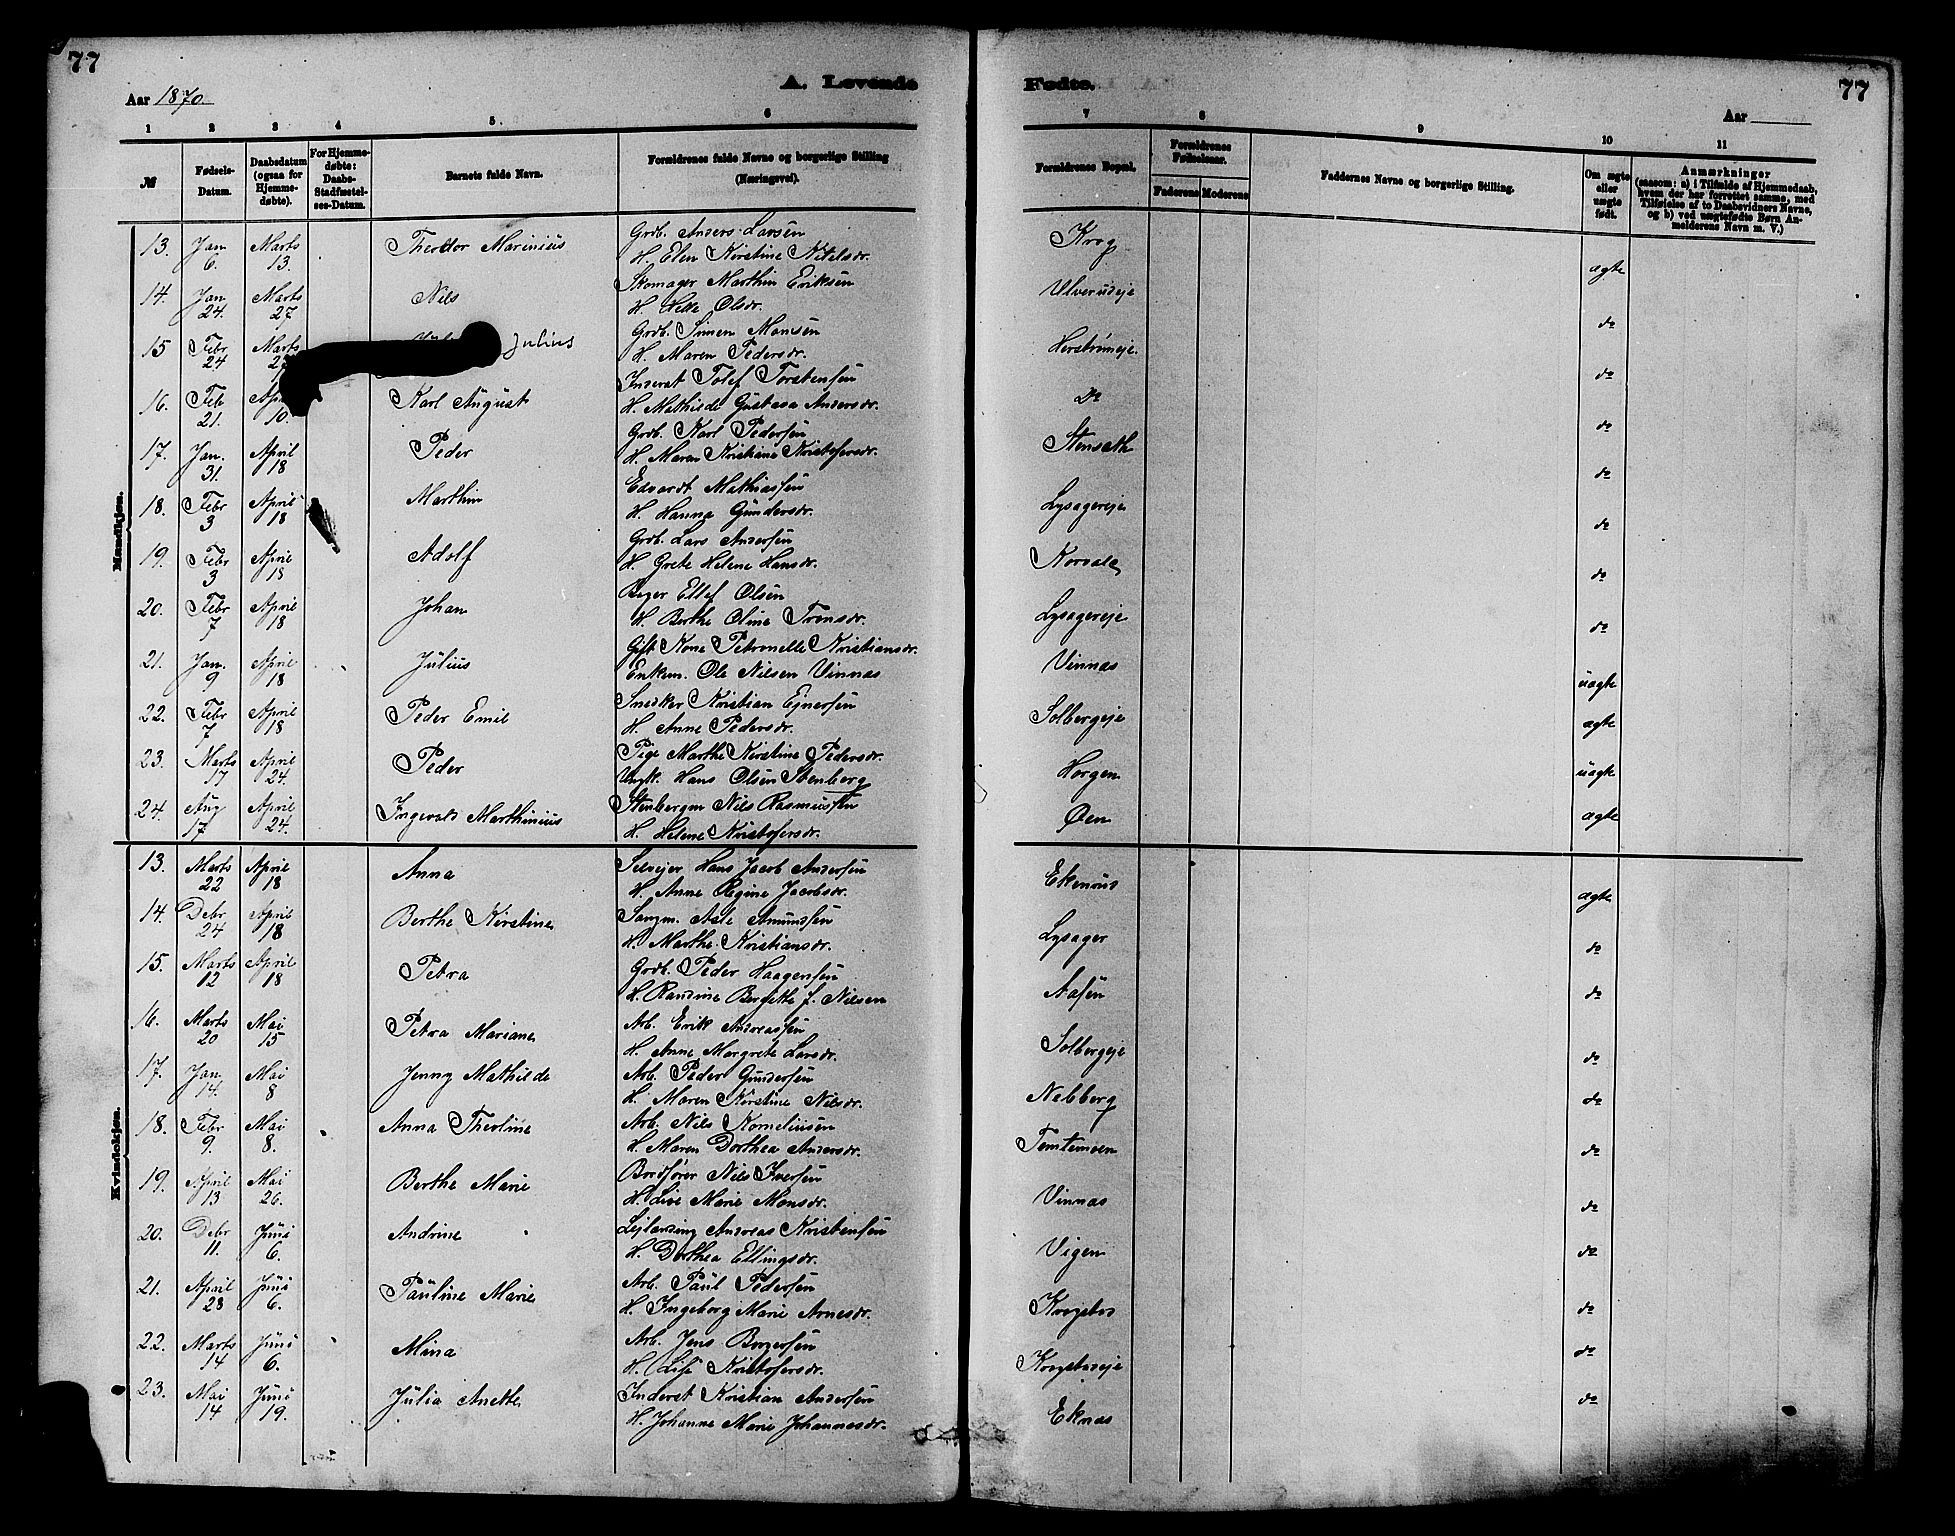 77
77
Aar 1870.
A. Levende Fødte.
Aar
1 2 3 4 5 6 7 8 9 10 11
№
Fødsels-Datum.
Daabsdatum (ogsaa for Hjemmedøbte).
For Hjemmedøbte: Daabs-Stadfæstelses-Datum.
Barnets fulde Navn.
Forældrenes fulde Navne og borgerlige Stilling (Næringsvei).
Forældrenes Bopæl.
Forældrenes Fødselsaar.
Faderens Moderens
Faddernes Navne og borgerlige Stilling.
Om ægte eller uægte født.
Anmærkninger (saasom: a) i Tilfælde af Hjemmedaab, hvem der har forrettet samme, med Tilføielse af to Daabsvidners Navne, og b) ved uægtefødte Børn Anmelderens Navn m. V.)
Mandkjøn.
13. Jan 6. Marts 13. Theodor Marinius Grdb. Anders Larsen Krog ægte
H. Elen Kirstine Nilsdr.
14. Jan 24. Marts 27 Nils Skomager Marthin Eriksen Ulverudeje do
H. Helle Olsdr.
15 Febr 24 Marts Julius Grdb. Simen Monsen Herstrømeje do
H. Maren Pedersdr.
16. Feb 21. April 10. Karl August Inderst Tolef Torstensen Do do
H. Mathilde Gustava Andersdr.
17. Jan. 31. April 18 Peder Grdb. Karl Pedersen Stenseth do
H. Maren Kristiane Kristofersdr.
18. Febr 3 April 18 Marthin Edvardt Mathiassen Lysagereje do
H. Hanna Gundersdr.
19. Febr 3 April 18 Adolf Grdb. Lars Andersen Korvald do
H. Grete Helene Hansdr.
20. Febr 7 April 18 Johan Ellef Olsen Lysagereje do
H. Berthe Oline Tronsdr.
21. Jan. 9 April 18 Julius Gift Kone Petronelle Kristiansdr. Vinnas uægte
Enkem. Ole Nilsen Vinnas
22. Febr 7 April 18 Peder Emil Snedker Kristian Ejnersen Solbergeje ægte
H. Anne Pedersdr.
23. Marts 17 April 24. Peder Pige Marthe Kirstine Pedersdr. Horgen uægte
Ungk. Hans Olsen Stenberg
24. Aug 17 April 24. Ingevald Marthinius Nils Rasmussen Øen ægte
H. Helene Kristofersdr.
Kvindekjøn.
13. Marts 22 April 18 Anna Selvejer Hans Jacob Andersen Ekenæs ægte
H. Anne Regine Jacobsdr.
14. Debr 24 April 18 Berthe Kirstine Sangm. Asle Amundsen Lysager do
H. Marthe Kristiansdr.
15. Marts 12 April 18 Petra Grdb. Peder Haagensen Aasen do
H. Randine Bergitte f. Nilsen
16. Marts 20 Mai 15 Petra Mariane Arb. Erik Andreassen Solbergeje do
H. Anne Margrete Larsdr.
17. Jan 14. Mai 8 Jenny Mathilde Arb. Peder Gundersen Nebberg do
H. Maren Kirstine Nilsdr.
18. Febr 9. Mai 8. Anna Theoline Arb. Nils Korneliusen Tomtemoen do
H. Maren Dorthea Andersdr.
19. April 13 Mai 26. Berthe Marie Nils Iversen Vinnas do
H. Live Marie Monsdr.
20. Debr 11. Juni 6. Andrine Lejlending Andreas Kristensen Vigen do
H. Dorthea Ellingsdr.
21. April 28 Juni 6. Pauline Marie Arb. Paul Pedersen Krogstad do
H. Ingeborg Marie Arnesdr.
22. Marts 14 Juni 6. Mina Arb. Jens Borgersen Krogstadeje do
H. Lise Kristofersdr.
23. Mai 14 Juni 19. Julia Anette Inderst Kristian Andersen Eknæs do
H. Johanne Marie Johannesdr.